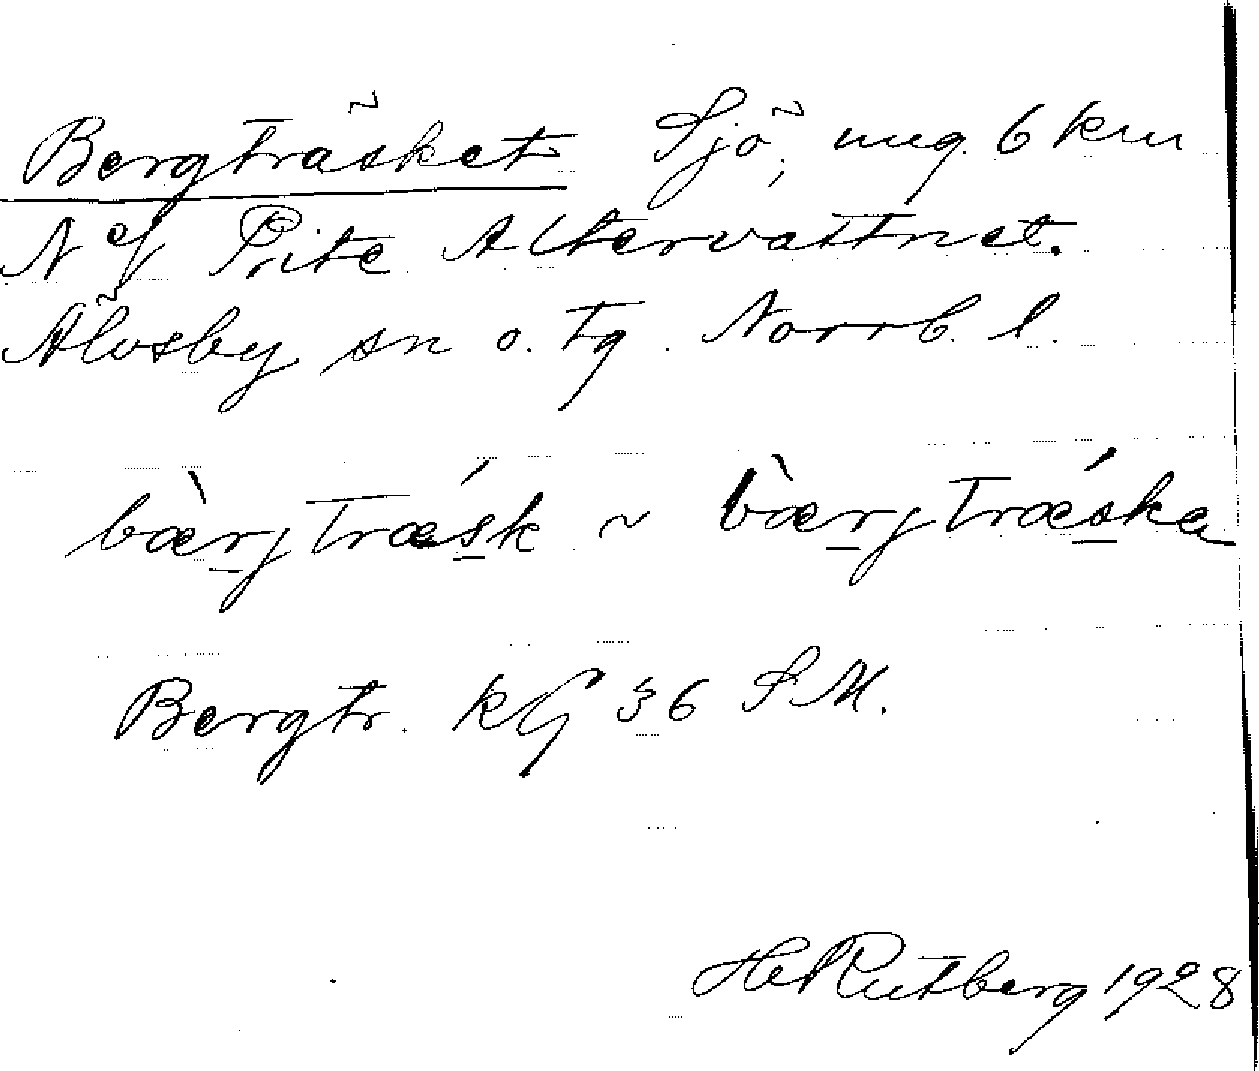 Bergträsket Sjö, ung. 6 km
N of Pite Altervattnet.
Älvsby sn o. tg. Norrb. l.
bæ̀rjtrǽsk ~ bæ̀rjtrǽska
Bergtr. kG 36 S.M.
HeRutberg 1928